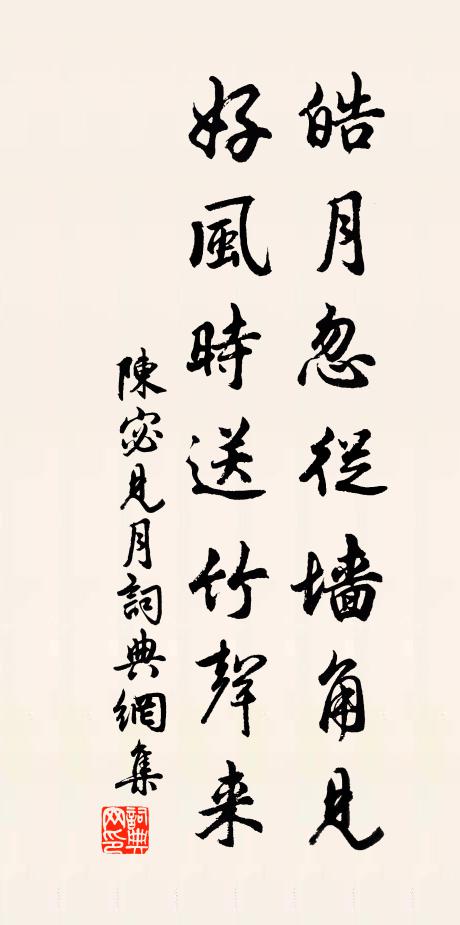 皓月忽從墻角見
好風時送竹聲来
陳宓見月詞典網集
詞典
网印